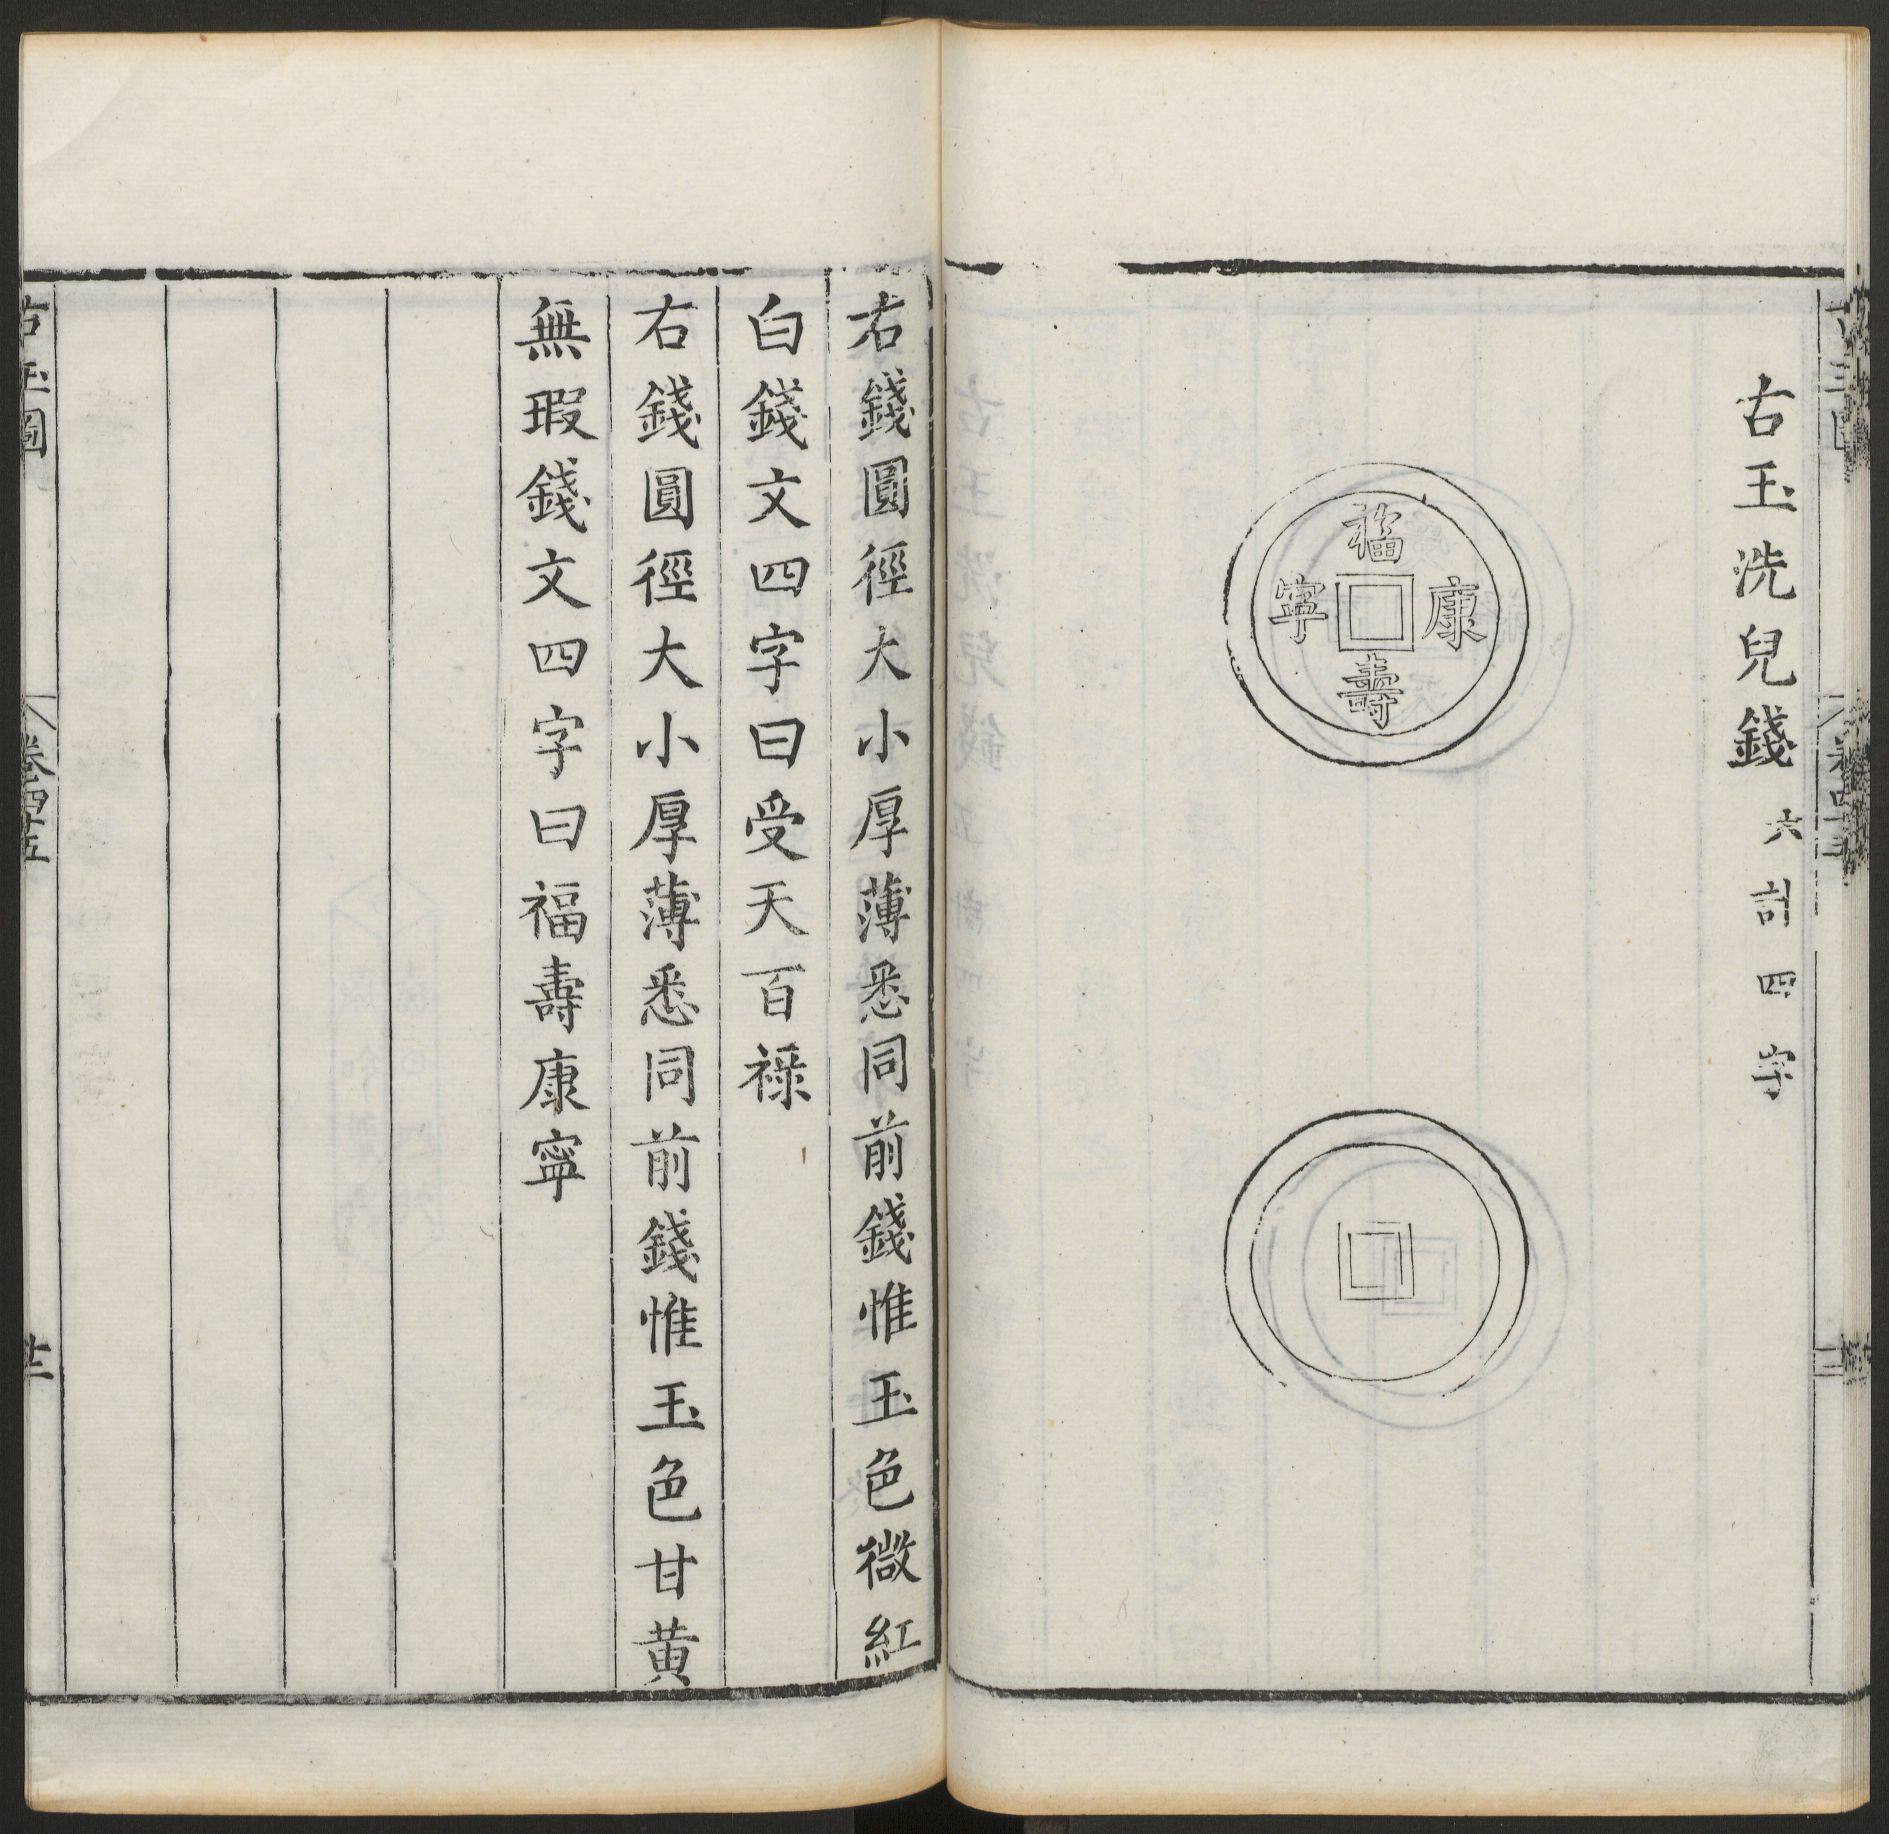 古玉洗兒錢六計四字
福
康
寧
壽
右錢圓徑大小厚薄悉同前錢惟玉色微紅
白錢文四字曰受天百祿
右錢圓徑大小厚薄悉同前錢惟玉色甘黄
無瑕錢文四字曰福壽康寧
古玉圖
卷四十五